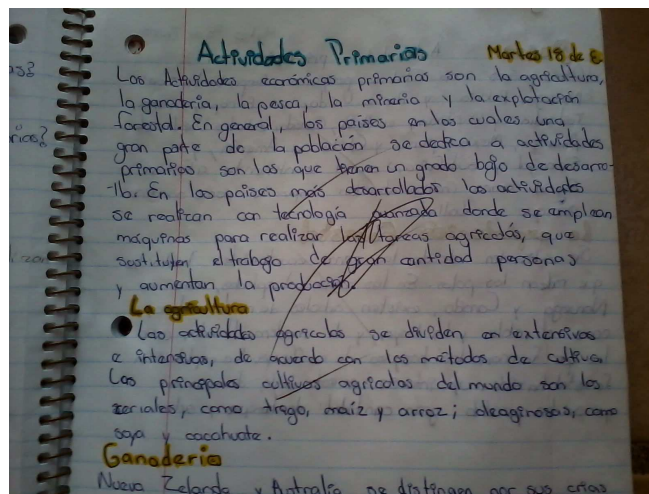 Actividades Primarias Martes 18 de
Las Actividades económicas primarias son la agricultura,
la ganaderia, la pesca, la mineria y la explotación
forestal. En general, los paises en los cuales una
gran parte de la población se dedica a actividades
primarias son las que tienen un grado bajo de desarro-
-llo. En los paises más desarrollados las actividades
se realizan con tecnología avanzada donde se emplean
máquinas para realizar las tareas agricolas, que
sustituyen el trabajo de gran cantidad personas
y aumentan la producción.
La agricultura
Las actividades agricolas se dividen en extensivas
e intensivas, de acuerdo con los métodos de cultivo
Los principales cultivos agricolas del mundo son los
cereales, como trigo, maíz y arroz; oleaginosas, como
soya y cacahuate.
Ganaderia
Nueva Zelanda y se distinguen por sus crias